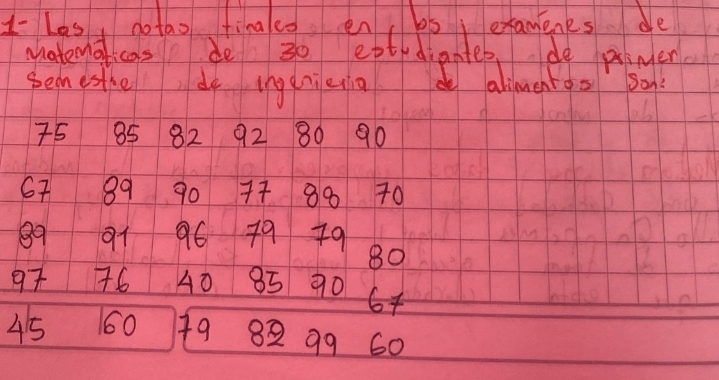 1- Las notas finales en los examenes de
Matematicas de 30 estudiantes, de primer
semestre de ingenieria de alimentos son:
75 85 82 92 80 90
67 89 90 77 88 70
89 91 96 79 79 80
97 76 40 85 90 67
45 60 79 82 99 60